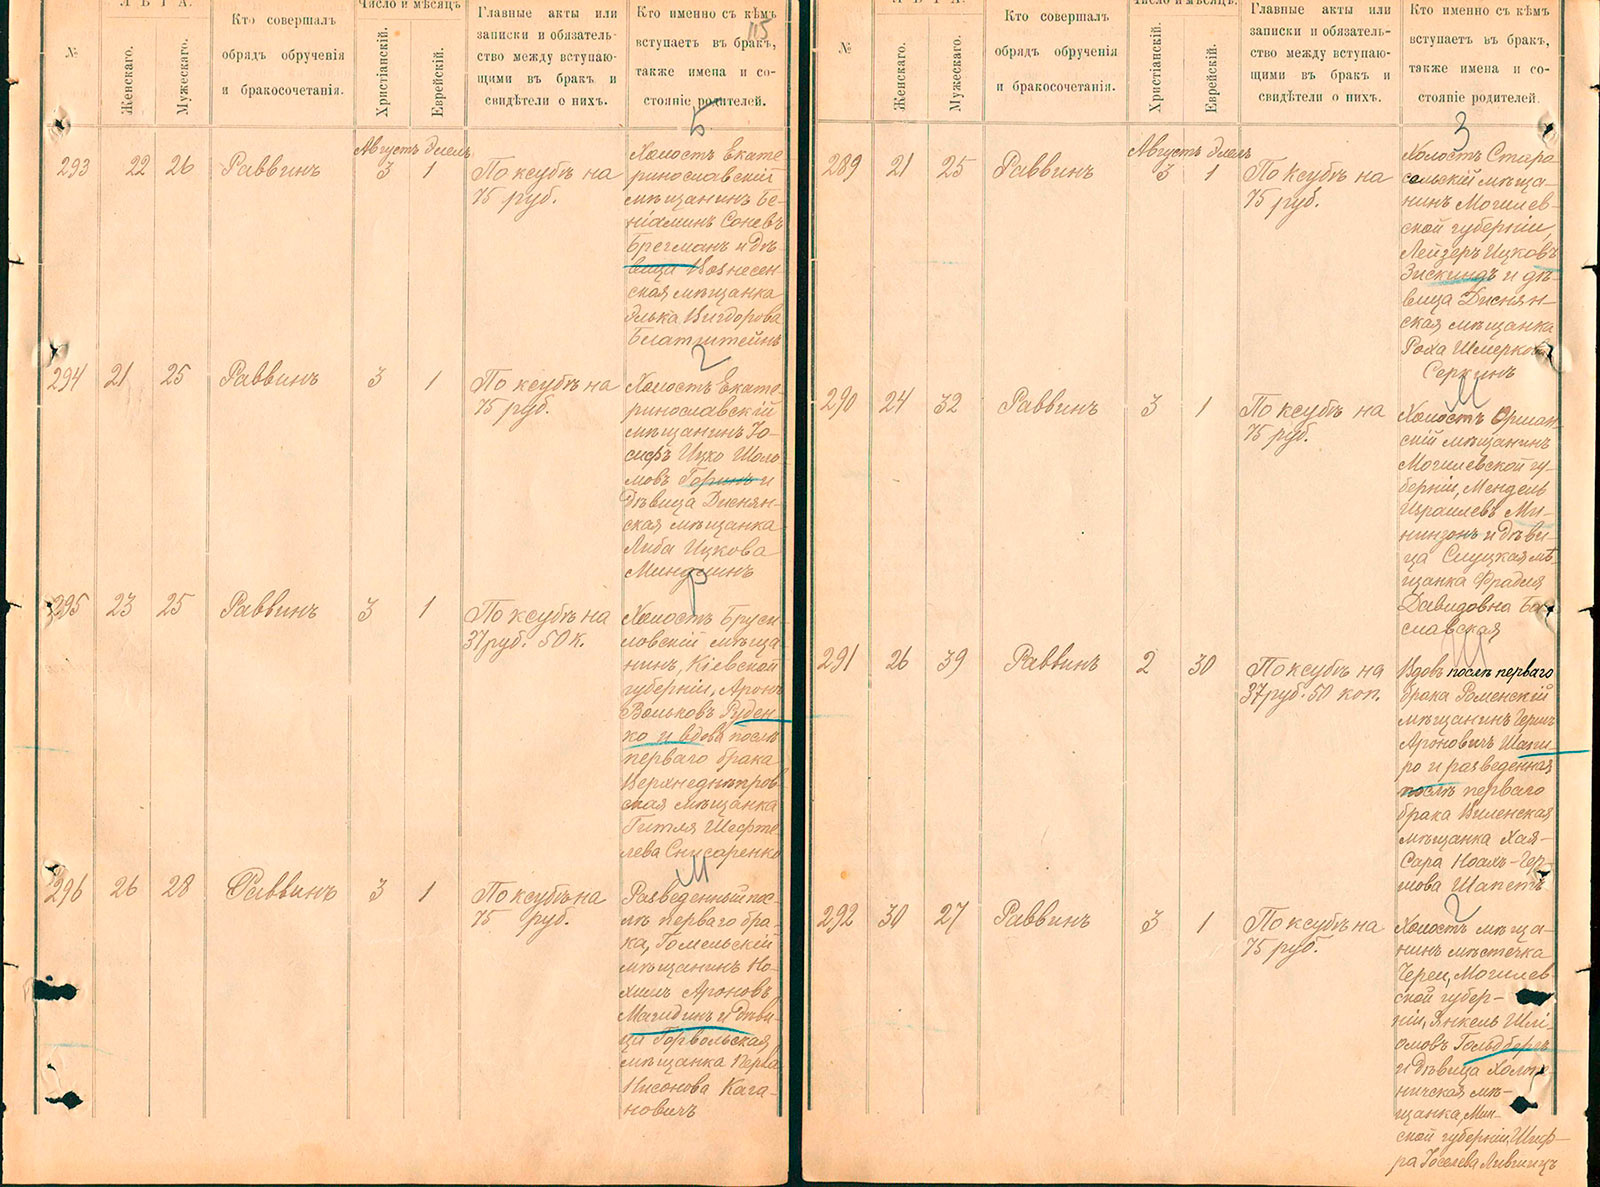 115
№
ЛѢТА.
Женскаго.
Мужескаго.
Кто совершалъ
обрядъ обрученія
и бракосочетанія.
Число и мѣсяцъ
Христіанскій.
Еврейскій.
Главные акты или
записки и обязатель-
ство между вступаю-
щими въ бракъ и
свидѣтели о нихъ.
Кто именно съ кѣмъ
вступаетъ въ бракъ,
также имена и со-
стояніе родителей.
Августъ Элелъ
293 22 26 Раввинъ 3 1
По ксубѣ на
75 руб.
Б
Холостъ Екате-
ринославскій
мѣщанинъ Бе-
ніаминъ Соневъ
Брегманъ и дѣ-
вица Вознесен-
ская мѣщанка
Элька Вигдорова
Блатштейнъ
294 21 25 Раввинъ 3 1
По ксубѣ на
75 руб.
Г
Холостъ Екате-
ринославскій
мѣщанинъ Іо-
сифъ Ицко Шоло-
мовъ Горинъ и
дѣвица Диснян-
ская мѣщанка
Либа Ицкова
Миндлинъ
295 23 25 Раввинъ 3 1
По ксубѣ на
37 руб. 50 к.
Р
Холостъ Бруси-
ловскій мѣща-
нинъ, Кіевской
губерніи, Аронъ
Вольковъ Руден-
ко и вдова послѣ
перваго брака
Верхнеднѣпров-
ская мѣщанка
Гитля Шефте-
лева Снисаренко
296 26 28 Раввинъ 3 1
По ксубѣ на
75 руб.
М
Разведенный пос-
лѣ перваго бра-
ка, Гомельскій
мѣщанинъ Но-
химъ Ароновъ
Магидинъ и дѣви-
ца Горвольская
мѣщанка Перла
Нисонова Кага-
новичъ
№
ЛѢТА.
Женскаго.
Мужескаго.
Кто совершалъ
обрядъ обрученія
и бракосочетанія.
Число и мѣсяцъ.
Христіанскій.
Еврейскій.
Главные акты или
записки и обязатель-
ство между вступаю-
щими въ бракъ и
свидѣтели о нихъ.
Кто именно съ кѣмъ
вступаетъ въ бракъ,
также имена и со-
стояніе родителей.
Августъ Элелъ
289 21 25 Раввинъ 3 1
По ксубѣ на
75 руб.
З
Холостъ Старо
сельскій мѣща-
нинъ Могилев-
ской губерніи,
Лейзеръ Ицковъ
Зискиндъ и дѣ-
вица Диснян-
ская мѣщанка
Роха Шмеркова
Соркинъ
290 24 32 Раввинъ 3 1
По ксубѣ на
75 руб.
М
Холостъ Оршан-
скій мѣщанинъ
Могилевской гу-
берніи, Мендель
Израилевъ Ми-
нинзонъ и дѣви-
ца Слуцкая мѣ-
щанка Фрадля
Давидовна Бо-
славская
291 26 39 Раввинъ 2 30
По ксубѣ на
37 руб. 50 коп.
Ш
Вдовъ послѣ перваго
брака Роменскій
мѣщанинъ Гершъ
Ароновичъ Шапи-
ро и разведенная
послѣ перваго
брака Виленская
мѣщанка Хая-
Сара Ноахъ-Гер-
шова Шапетъ
292 30 27 Раввинъ 3 1
По ксубѣ на
75 руб.
Г
Холостъ мѣща-
нинъ мѣстечка
Череи, Могилев-
ской губер-
ніи, Янкель Шлі-
омовъ Гольдбергъ
и дѣвица Холопе-
ничская мѣ-
щанка, Мин-
ской губерніи, Шиф-
ра Іоселева Лившицъ